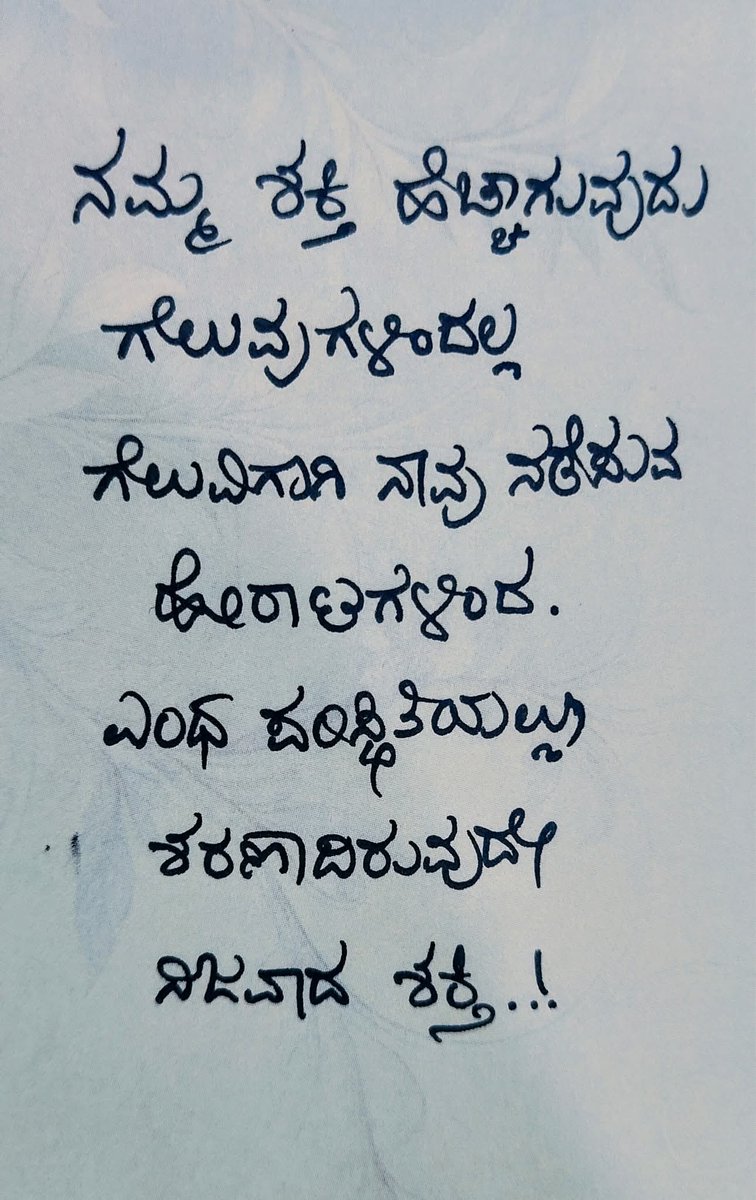 ನಮ್ಮ ಶಕ್ತಿ ಹೆಚ್ಚಾಗುವುದು
ಗೆಲುವುಗಳಿಂದಲ್ಲ
ಗೆಲುವಿಗಾಗಿ ನಾವು ನಡೆಸುವ
ಹೋರಾಟಗಳಿಂದ.
ಎಂಥ ಪರಿಸ್ಥಿತಿಯಲ್ಲೂ
ಶರಣಾದಿರುವುದೇ
ನಿಜವಾದ ಶಕ್ತಿ..!